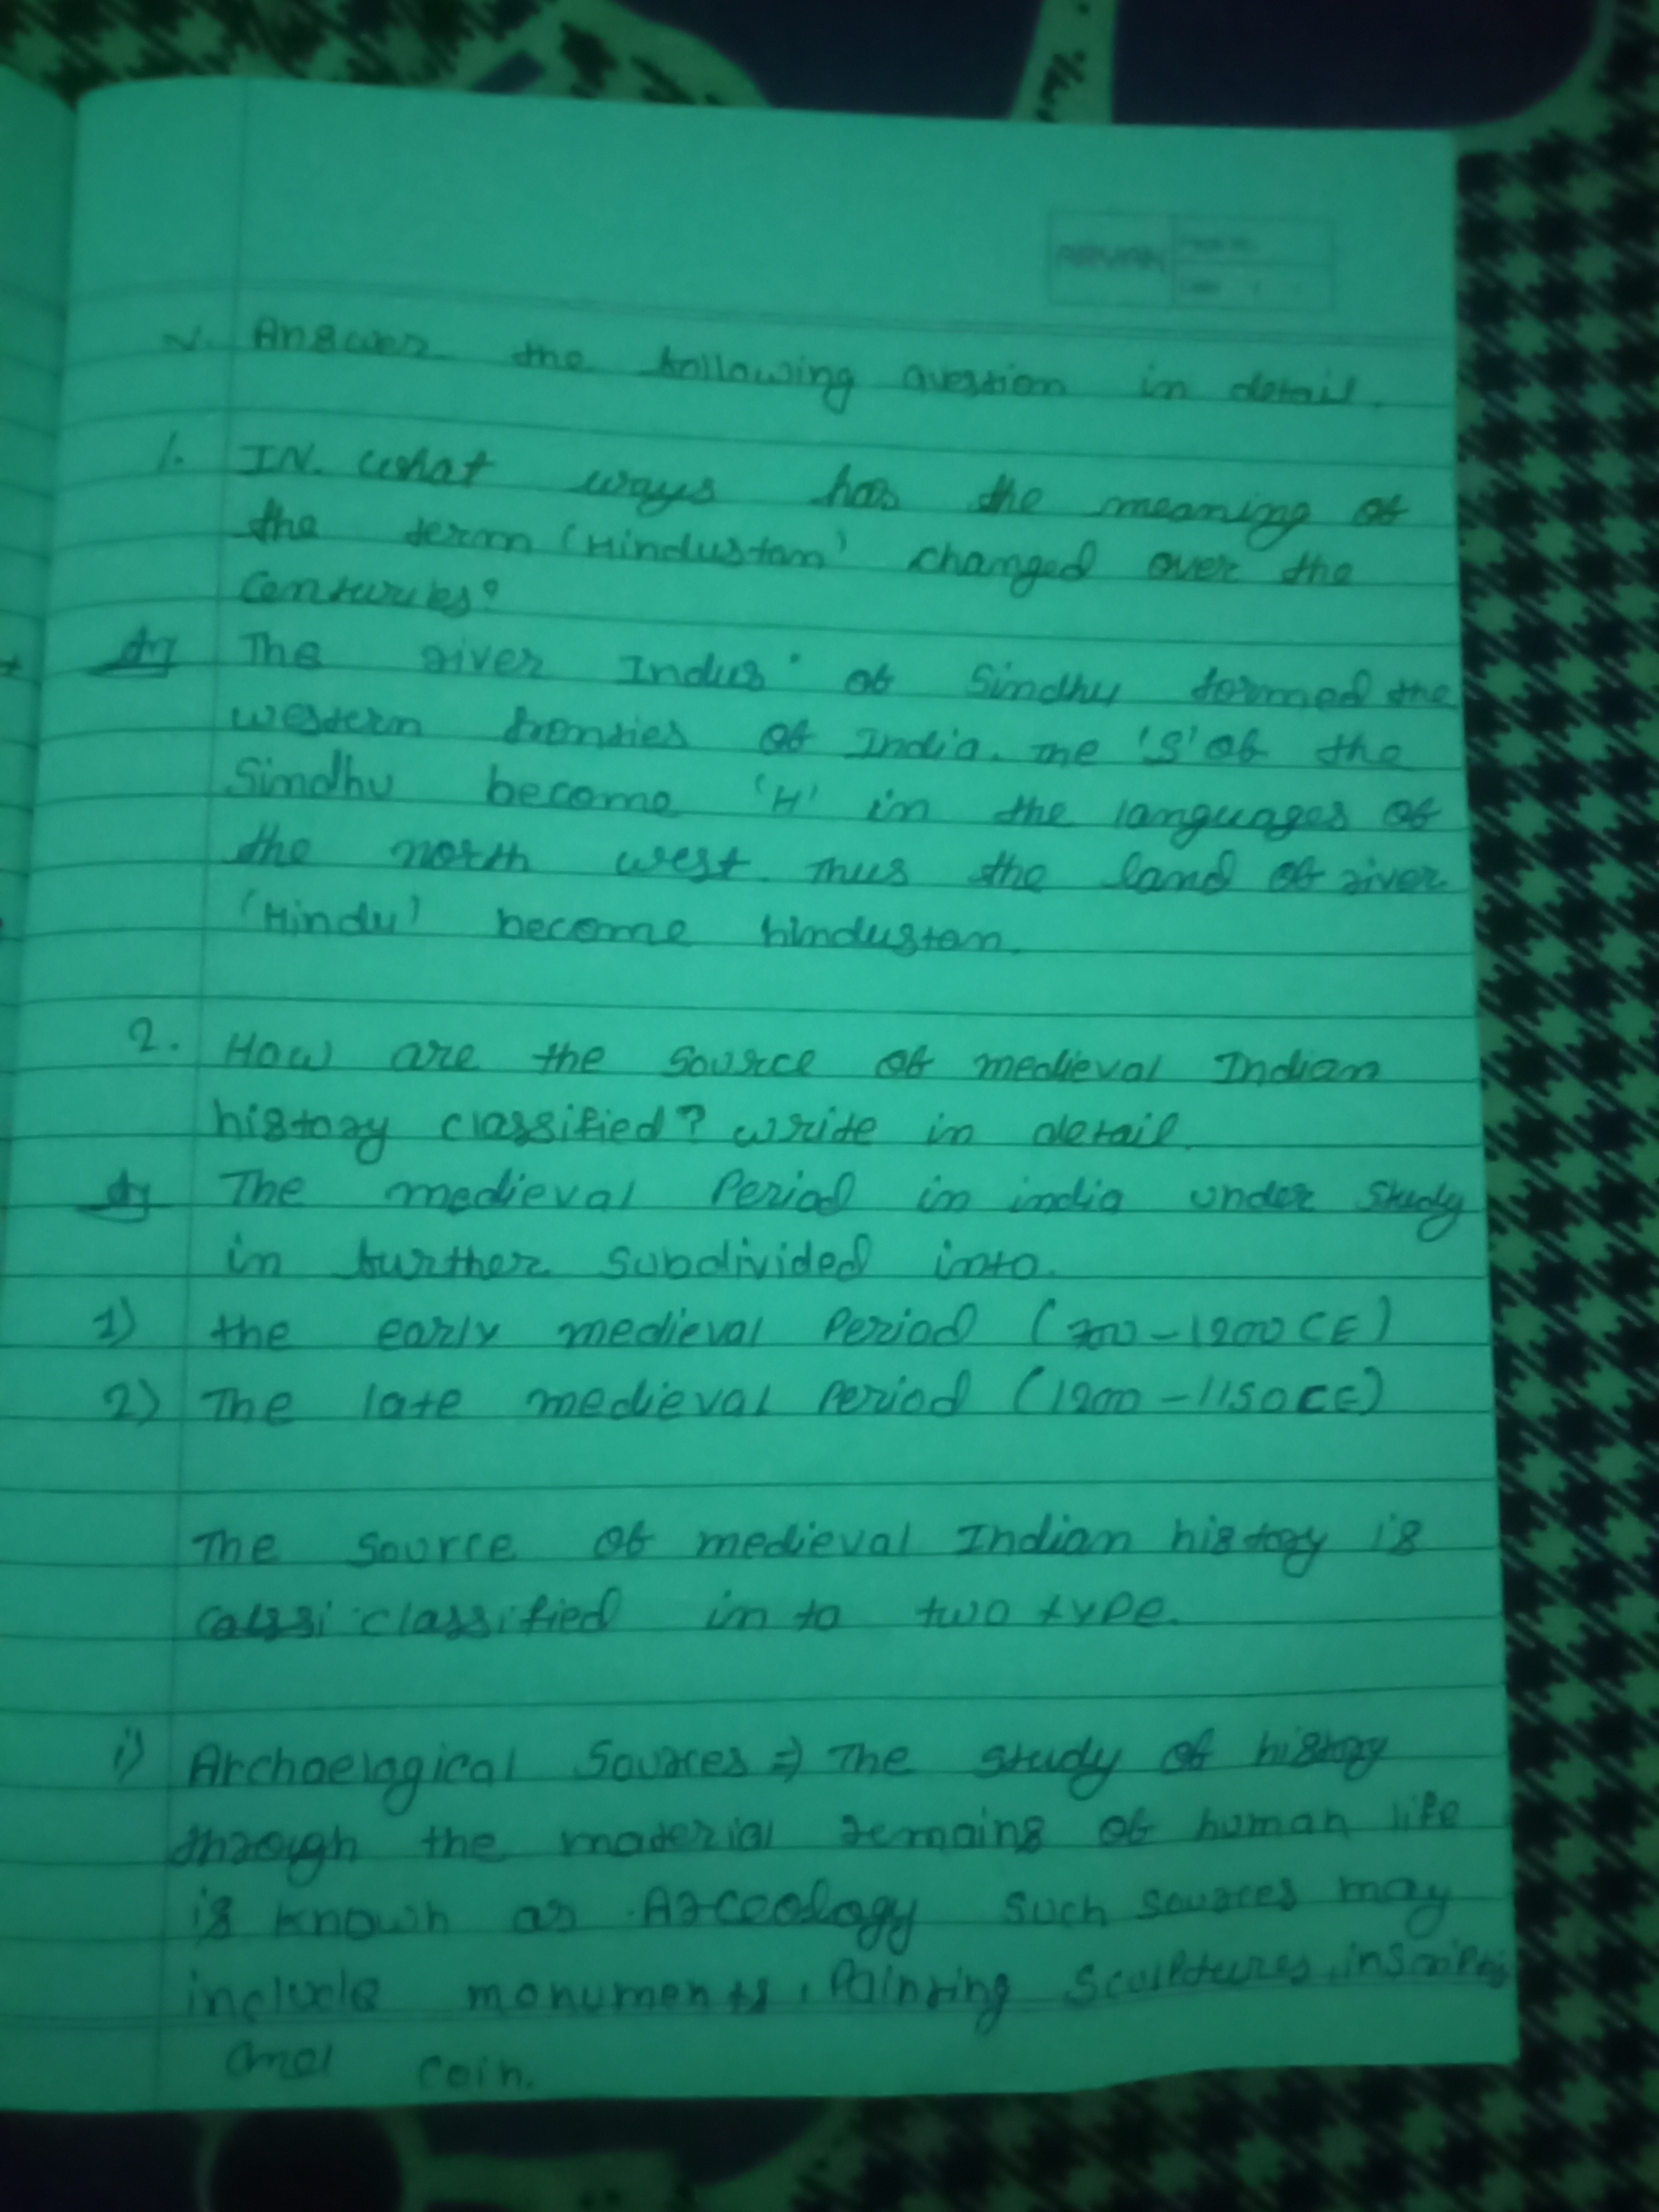 V. Answer the following question in detail.
1. IN what ways has the meaning of
the term 'Hindustan' changed over the
Centuries?
The river Indus of Sindhu formed the
western fronties of India. The 'S' of the
Sindhu become 'H' in the languages of
the north west. Thus the land of river
'Hindu' become hindustan.
2. How are the source of medieval Indian
history classified? write in detail.
The medieval Period in india under study
in further subdivided into.
1) the early medieval Period (700-1200 CE)
2) The late medieval Period (1200-1150 CE)
The source of medieval Indian history is
classified in to two type.
i) Archaelogical Sources => The study of history
through the material remains of human life
is known as Arceology such sources may
include monuments, Painting Sculptures,
and coin.